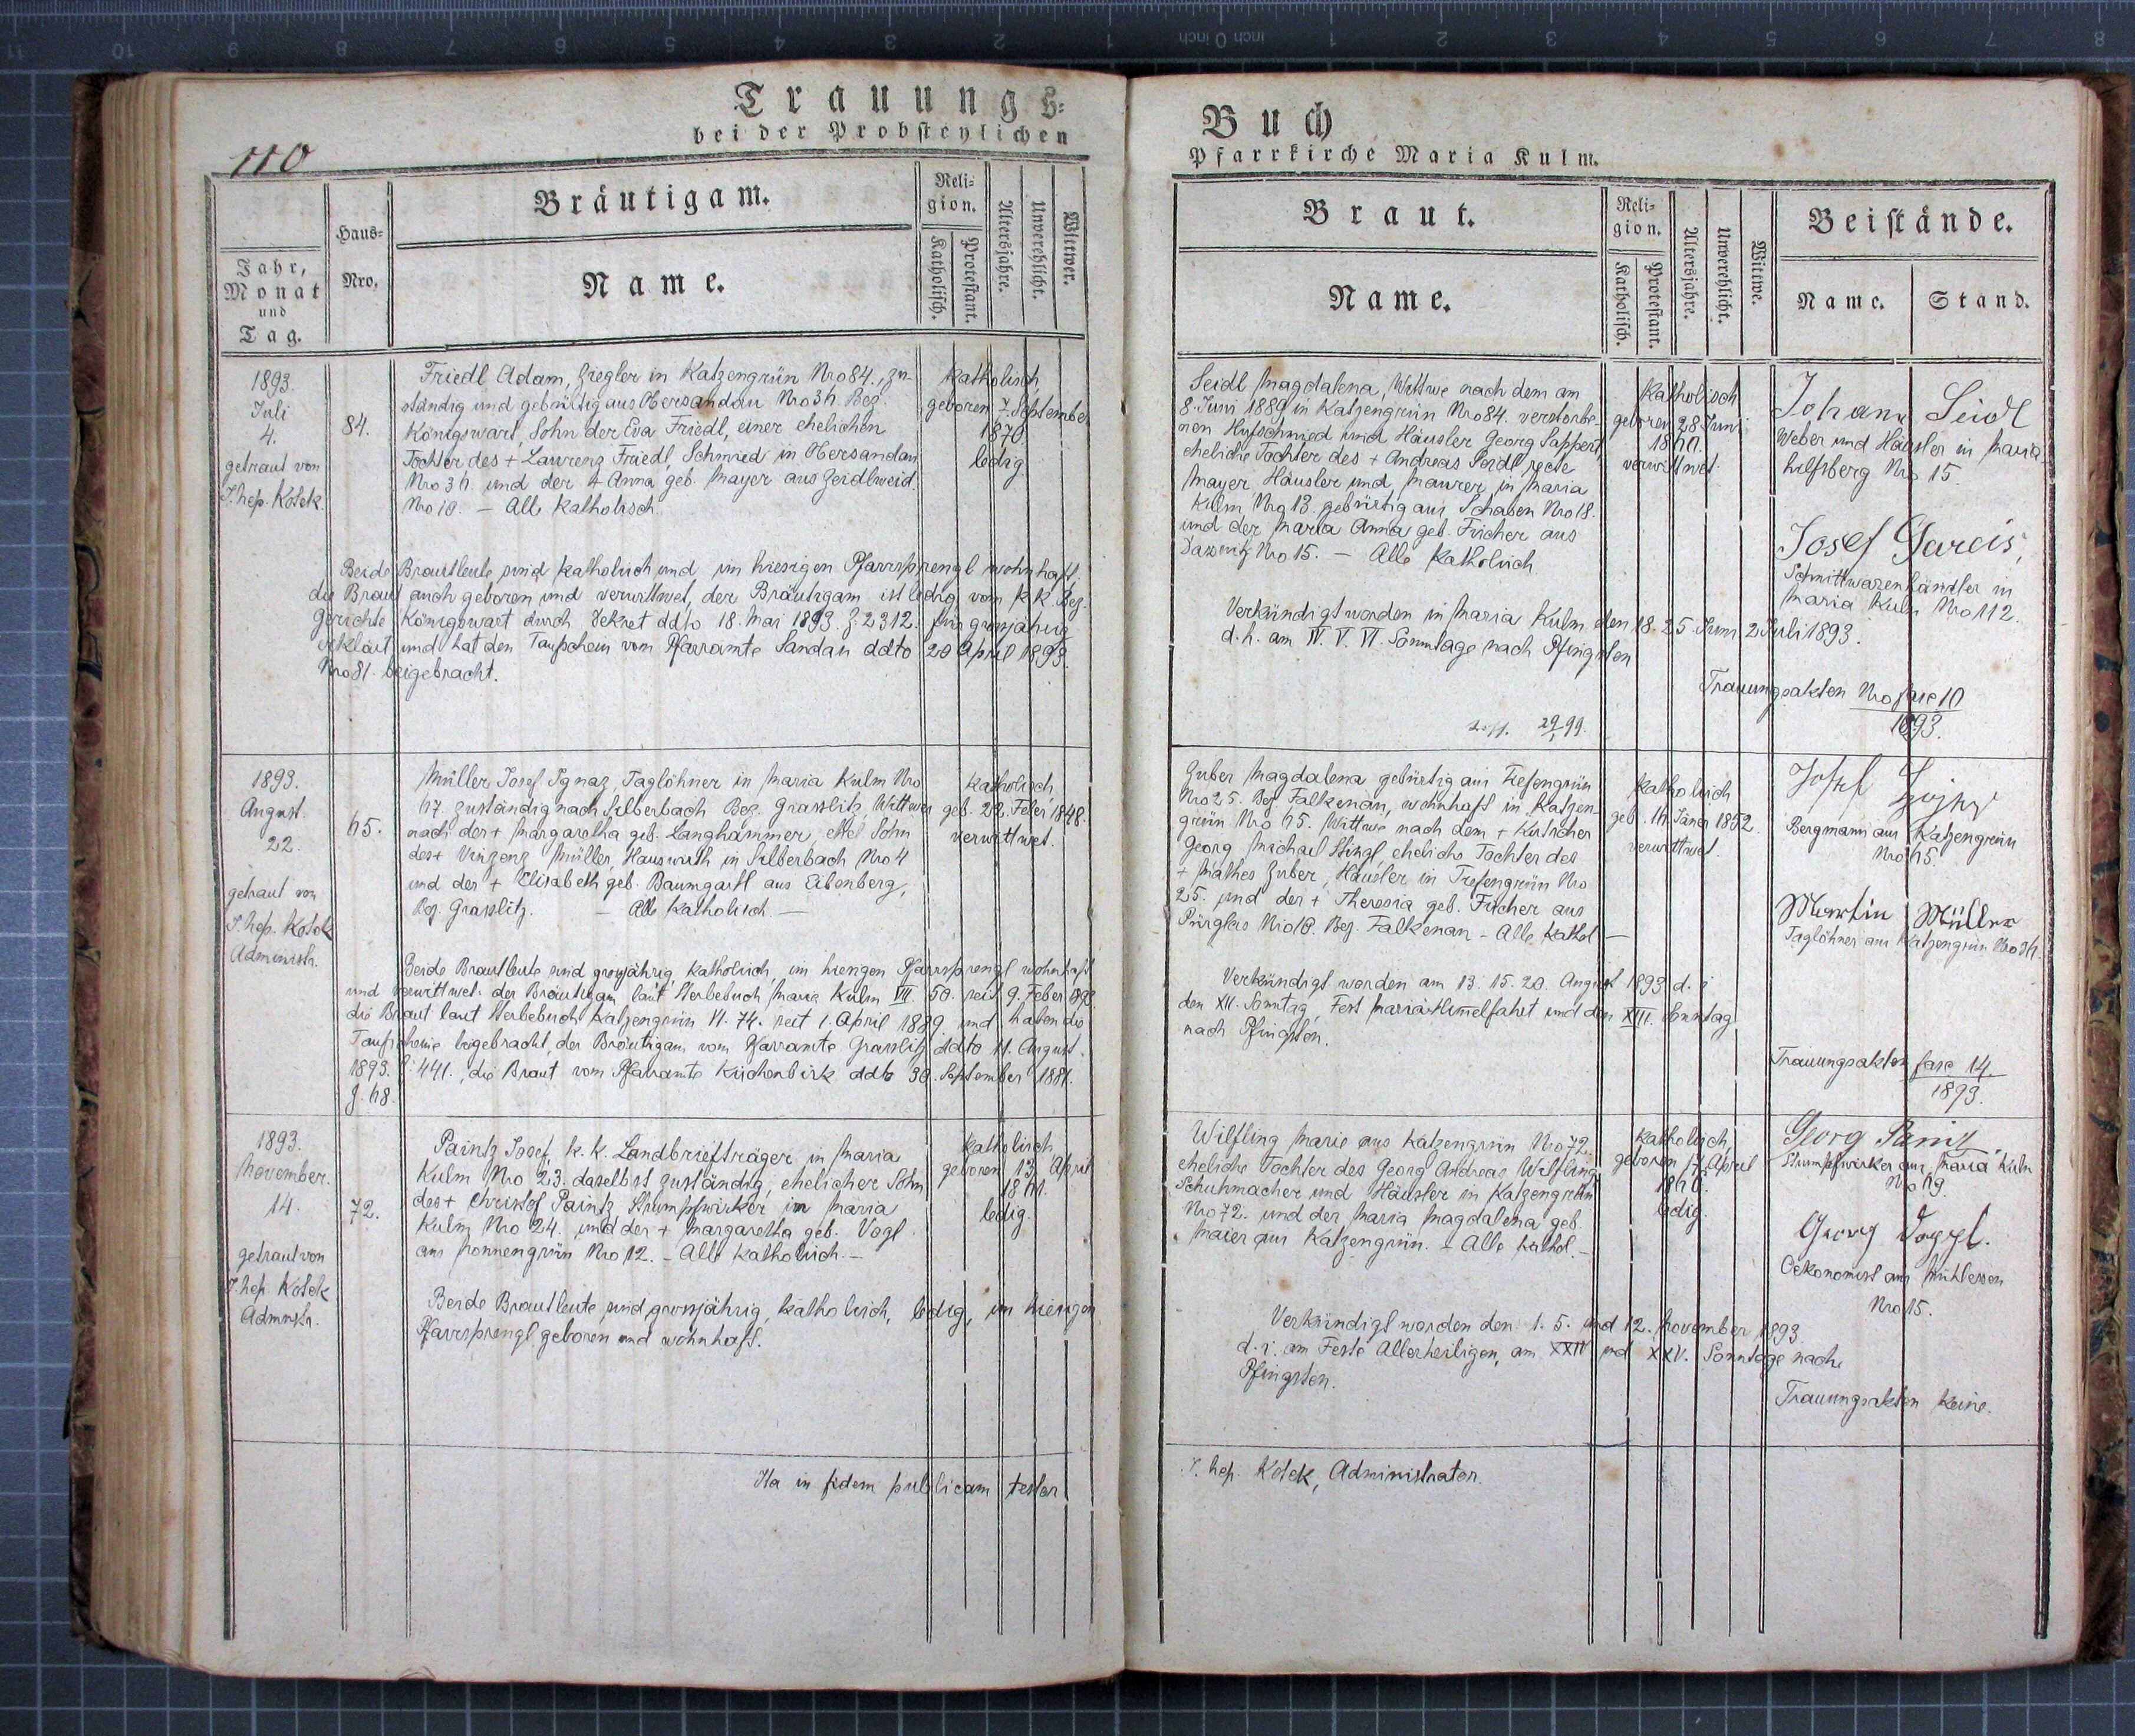 Trauungs-
bei der Probsteylichen
110
Jahr,
Monat
und
Tag.
Haus-
Nro.
Bräutigam.
Name.
Reli-
gion.
Katholisch.
Protestant.
Altersjahre.
Unverehlicht.
Wittwer.
1893.
Juli
4.
getraut von
J. Nep. Kotek.
84.
Friedl Adam, Ziegler in Katzengrün Nro 84., zu-
ständig und gebürtig aus Obersandau Nro 34. Bez.
Königswart, Sohn der Eva Friedl, einer ehelichen
Tochter des + Laurenz Friedl, Schmied in Obersandau
Nro 34. und der + Anna geb. Mayer aus Zeidlweid.
Nro 10. — Alle Katholisch.
Katholisch
geboren 7. September
1870.
ledig.
Beide Brautleute sind katholisch und im hiesigen Pfarrsprengl wohnhaft,
die Braut auch geboren und verwittwet, der Bräutigam ist ledig vom k. k. Bez.
Gerichte Königswart durch Dekret ddto 18. Mai 1893. Z. 2312. für grossjährig
erklärt und hat den Taufschein vom Pfarramte Sandau ddto 20 April 1893.
Nro 81. beigebracht.
1893.
August.
22.
getraut von
J. Nep. Kotek
Administr.
65.
Müller Josef Ignaz, Taglöhner in Maria Kulm Nro
47. zuständig nach Silberbach Bez. Grasslitz, Wittwer
nach der + Margaretha geb. Langhammer, ehel. Sohn
des + Vinzenz Müller, Hauswirth in Silberbach Nro 4
und der + Elisabeth geb. Baumgartl aus Eibenberg,
Bez. Grasslitz. — Alle Katholisch. —
Katholisch
geb. 22. Feber 1848.
verwittwet.
Beide Brautleute sind grossjährig, katholisch, im hiesigen Pfarrsprengl wohnhaft
und verwittwet. der Bräutigam laut Sterbebuch Maria Kulm VII. 50. seit 9. Feber 1893.
die Braut laut Sterbebuch Katzengrün VI. 74. seit 1. April 1889. und haben die
Taufscheine beigebracht, der Bräutigam vom Pfarramte Grasslitz ddto 11. August.
1893. Z. 441., die Braut vom Pfarramte Kirchenbirk ddto 30. September 1881.
Z. 68.
1893.
November.
14.
getraut von
J. Nep. Kotek
Administr.
72.
Paintz Josef, k. k. Landbriefträger in Maria
Kulm Nro 23. daselbst zuständig, ehelicher Sohn
des + Christof Paintz Strumpfwirker in Maria
Kulm Nro 24. und der + Margaretha geb. Vogl
aus Nonnengrün Nro 12. — Alle Katholisch. —
Katholisch,
geboren 13. April
ledig.
Beide Brautleute sind grossjährig, katholisch, ledig, im hiesigen
Pfarrsprengl geboren und wohnhaft.
Ita in fidem publicam testor
Buch
Pfarrkirche Maria Kulm.
Braut.
Name.
Reli-
gion.
Katholisch.
Protestant.
Altersjahre.
Unverehlicht.
Wittwe.
Beistände.
Name.
Stand.
Seidl Magdalena, Wittwe nach dem am
8. Juni 1889 in Katzengrün Nro 84. verstorbe-
nen Hufschmied und Häusler Georg Sappert,
eheliche Tochter des + Andreas Seidl recte
Mayer Häusler und Maurer in Maria
Kulm Nro 13. gebürtig aus Schaben Nro 18.
und der Maria Anna geb. Fischer aus
Dassnitz Nro 15. — Alle Katholisch.
Katholisch
geboren 28 Juni
verwittwet.
Johann Seidl
Weber und Häusler in Maria
hilfsberg Nro 15.
Josef Gareis,
Schnittwarenhändler in
Maria Kulm Nro 112.
Verkündigt worden in Maria Kulm den 18. 25. Juni 2 Juli 1893.
d. h. am IV. V. VI. Sonntage nach Pfingsten
Trauungsakten Nro fasc 10
1893.
Zuber Magdalena gebürtig aus Tiefengrün
Nro 25. Bez. Falkenau, wohnhaft in Katzen-
grün Nro 65. Wittwe nach dem + Kutscher
Georg Michael Stingl, eheliche Tochter des
+ Mathes Zuber, Häusler in Tiefengrün Nro
25. und der + Theresia geb. Fischer aus
Pürgles Nro 10. Bez. Falkenau — Alle Kathol —
Katholisch
geb. 14. Jäner 1852.
verwittwet.
Josef
Bergmann aus Katzengrün
Nro 65.
Martin Müller
Taglöhner aus Katzengrün Nro 34.
Verkündigt worden am 13. 15. 20. August 1893 d. i.
den XII. Sonntag, Fest Mariä Himelfahrt und den XIII. Sonntag
nach Pfingsten.
Trauungsakten fasc 14.
1893.
Wilfling Marie aus Katzengrün Nro 72.
eheliche Tochter des Georg Andreas Wilfling
Schuhmacher und Häusler in Katzengrün
Nro 72. und der Maria Magdalena geb.
Maier aus Katzengrün. — Alle kathol. —
Katholisch,
geboren 17. April
ledig.
Georg Painz
Strumpfwirker aus Maria Kulm
Georg Voggl.
Oekonomist aus Mühlessen
Nro 15.
Verkündigt worden den 1. 5. und 12. November 1893.
d. i. am Feste Allerheiligen, am XXIV und XXV. Sonntage nach
Pfingsten.
Trauungsakten keine.
J. Nep. Kotek, Administrator.